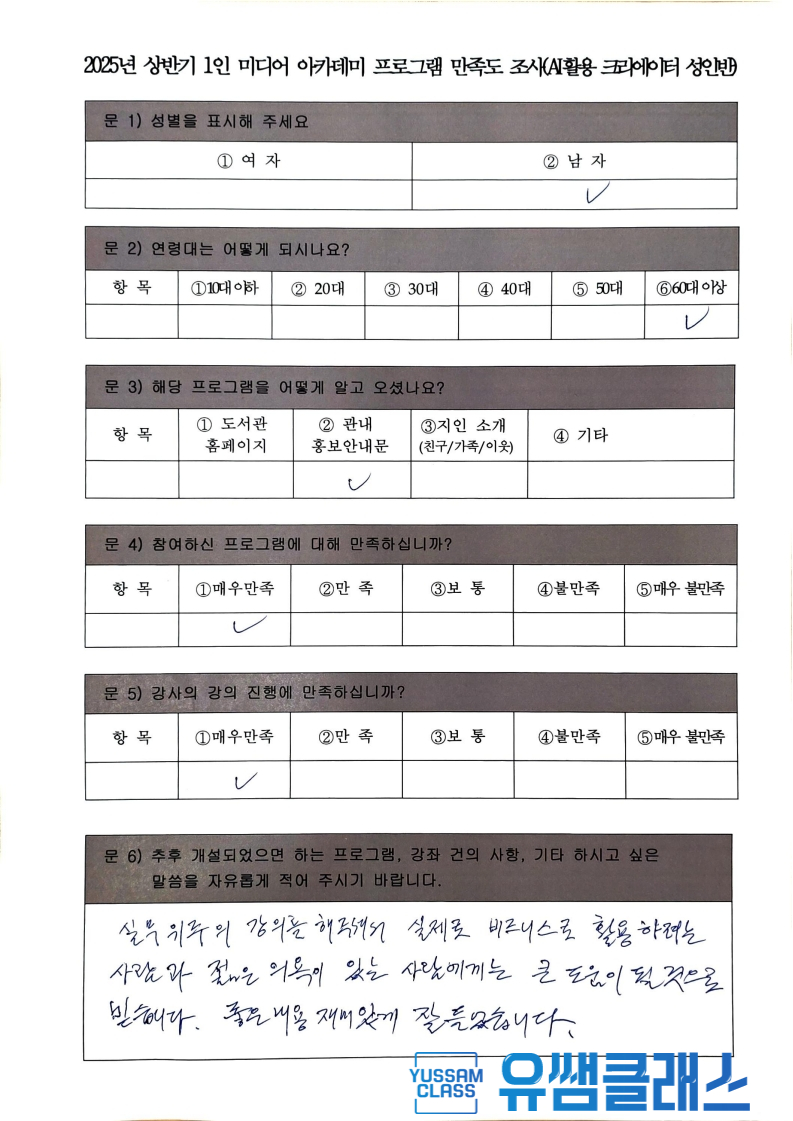 2025년 상반기 1인 미디어 아카데미 프로그램 만족도 조사(AI활용 크리에이터 성인반)
문 1) 성별을 표시해 주세요
① 여 자 ② 남 자
문 2) 연령대는 어떻게 되시나요?
항 목 ①10대이하 ② 20대 ③ 30대 ④ 40대 ⑤ 50대 ⑥60대이상
문 3) 해당 프로그램을 어떻게 알고 오셨나요?
항 목 ① 도서관 홈페이지 ② 관내 홍보안내문 ③지인 소개 (친구/가족/이웃) ④ 기타
문 4) 참여하신 프로그램에 대해 만족하십니까?
항 목 ①매우만족 ②만 족 ③보 통 ④불만족 ⑤매우 불만족
문 5) 강사의 강의 진행에 만족하십니까?
항 목 ①매우만족 ②만 족 ③보 통 ④불만족 ⑤매우 불만족
문 6) 추후 개설되었으면 하는 프로그램, 강좌 건의 사항, 기타 하시고 싶은
말씀을 자유롭게 적어 주시기 바랍니다.
실무위주의 강의를 해주셔서 실제로 비즈니스로 활용하려는
사람과 젊은 의욕이 있는 사람에게는 큰 도움이 될 것으로
믿습니다. 좋은내용 재미있게 잘 들었습니다.
YUSSAM
CLASS
유쌤클래스